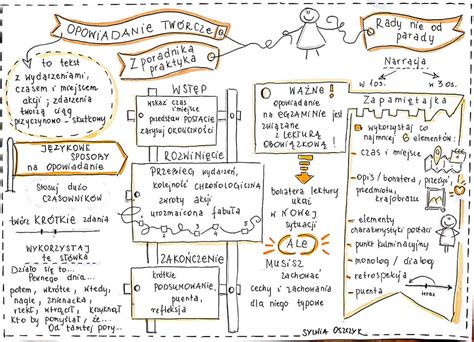 OPOWIADANIE TWÓRCZE
Z poradnika
praktyka
Rady nie od
parady
to tekst
z wydarzeniami,
czasem i miejscem
akcji; zdarzenia
tworzą ciąg
przyczynowo-skutkowy
JĘZYKOWE
SPOSOBY
na opowiadanie
Stosuj dużo
CZASOWNIKÓW
twórz KRÓTKIE zdania
WYKORZYSTAJ
te słówka
Działo się to...
Pewnego dnia...
potem, wkrótce, wtedy,
nagle, znienacka,
rzekł, wtrącił, krzyknął
Kto by pomyślał, że...
Od tamtej pory...
WSTĘP
wskaż czas
i miejsce
przedstaw POSTACIE
zarysuj OKOLICZNOŚCI
ROZWINIĘCIE
PRZEBIEG wydarzeń,
kolejność CHRONOLOGICZNA
zwroty akcji
urozmaicona fabuła
ZAKOŃCZENIE
krótkie
PODSUMOWANIE,
puenta,
refleksja
WAŻNE!
opowiadanie
na EGZAMINIE jest
związane
z LEKTURĄ
OBOWIĄZKOWĄ!
bohatera lektury
ukaż
w NOWEJ
sytuacji
ALE
MUSISZ
ZACHOWAĆ
cechy i zachowania
dla niego typowe
Narracja
w 1 os.
w 3 os.
Zapamiętajka
wykorzystaj co
najmniej 6 elementów:
czas i miejsce
opis/bohatera,
przeżyć
przedmiotu,
krajobrazu
elementy
charakterystyki postaci
punkt kulminacyjny
monolog/dialog
retrospekcja
puenta
teraz
SYLWIA OSZCZYK